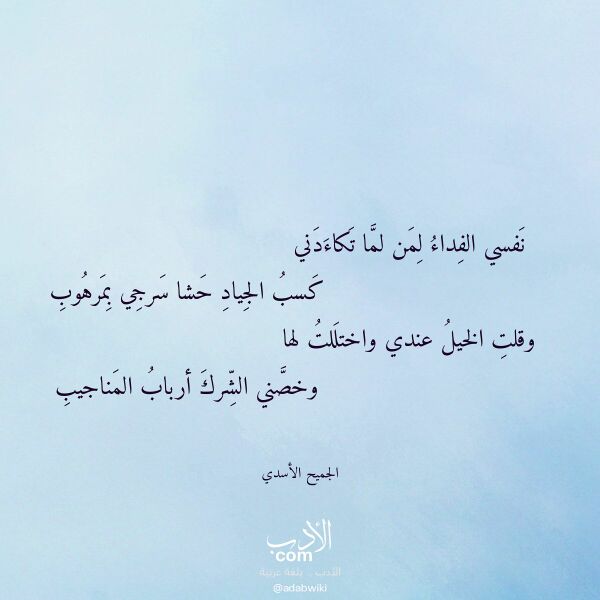 نَفسي الفِداءُ لِمَن لمَّا تَكاءَدَني
كَسبُ الجِيادِ حَشا سَرجِي بِمَرهُوبِ
وقلتِ الخيلُ عندي واختلَلتُ لها
وخصَّني الشِّركَ أربابُ المَناجيبِ
الجميح الأسدي
الأدب
com
الأدب .. بلغة عربية
@adabwiki